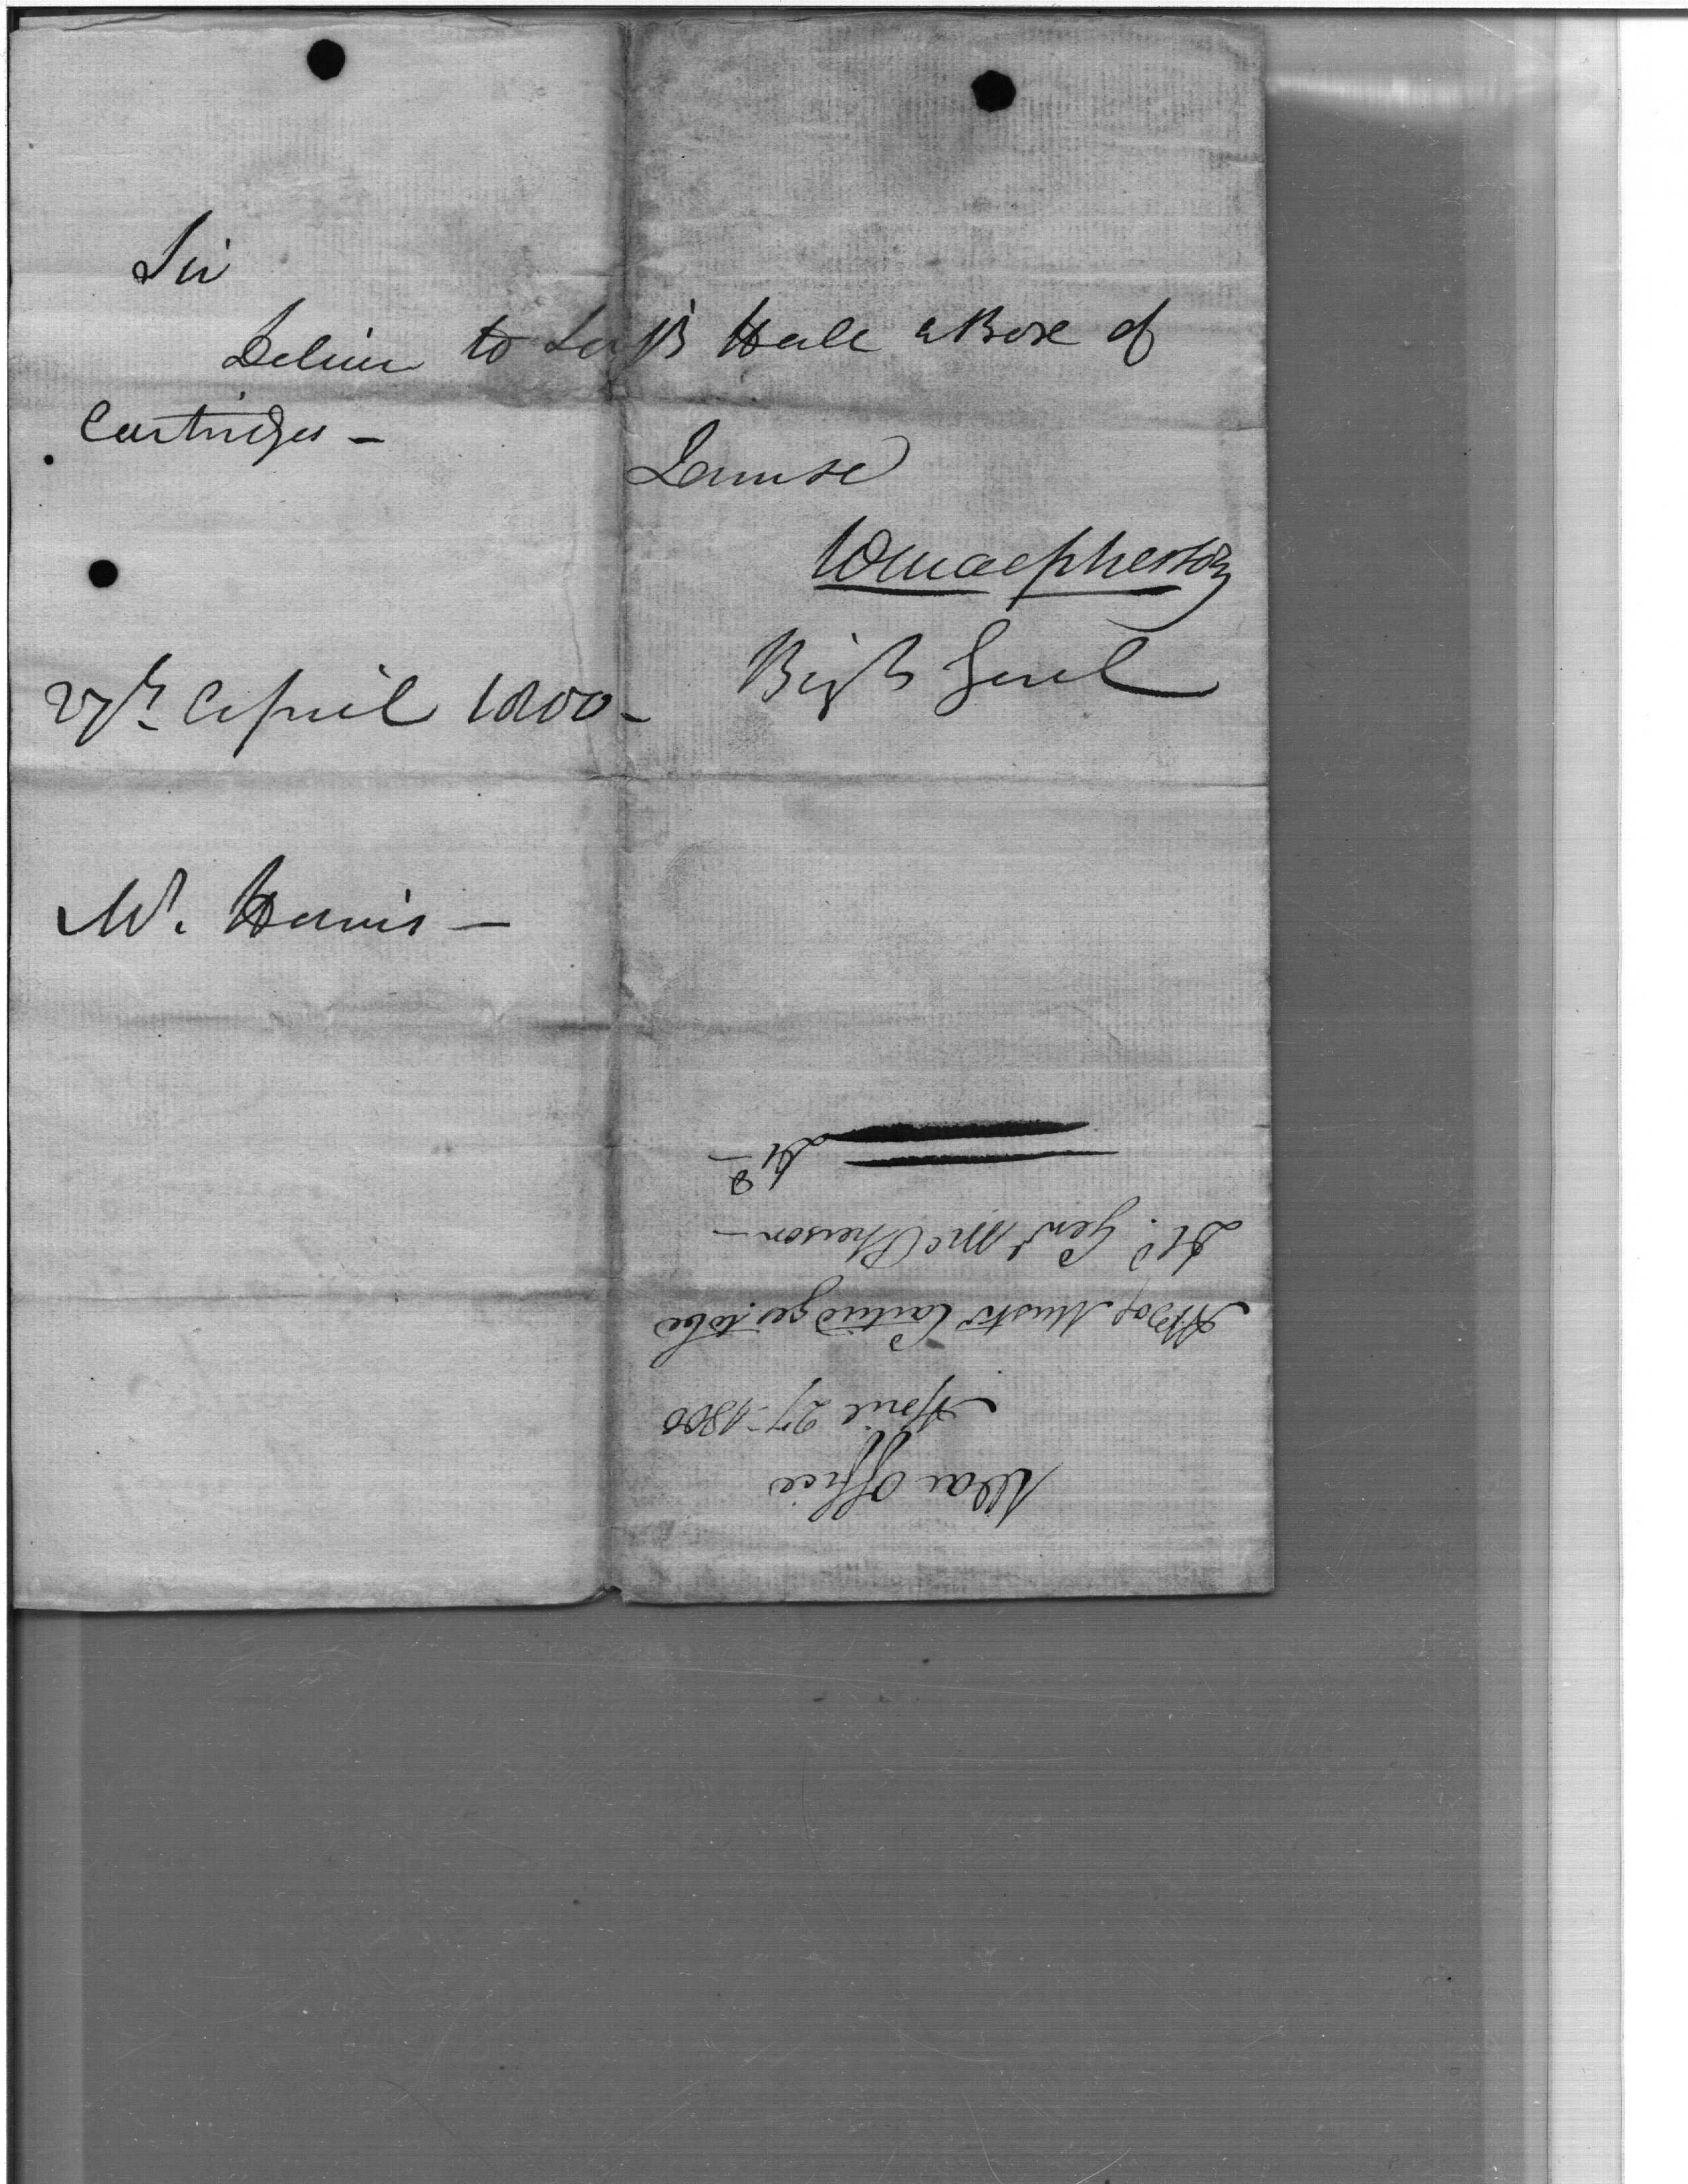 Sir
Deliver to Hale a Box of
Cartridges —
I am Sr
W Macpherson
Brigr Genel
27th April 1800 —
Mr. Harris —
War Office
April 27. 1800
A Box Muskt Cartridges to be
Dd. Genl McPherson —
Dd